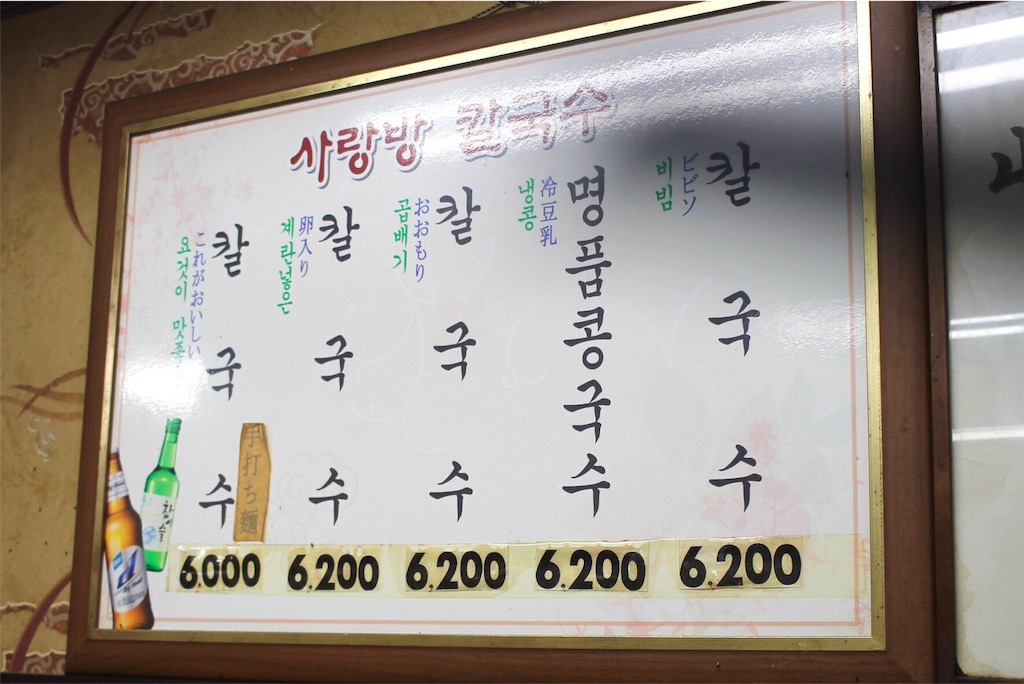 사랑방 칼국수
요것이 맛좋
これがおいしい
칼국수
手打ち麺
6.000
계란넣은
卵入り
칼국수
6,200
곱배기
おおもり
칼국수
6,200
냉콩
冷豆乳
명품콩국수
6,200
비빔
ビビソ
칼국수
6,200
참이슬